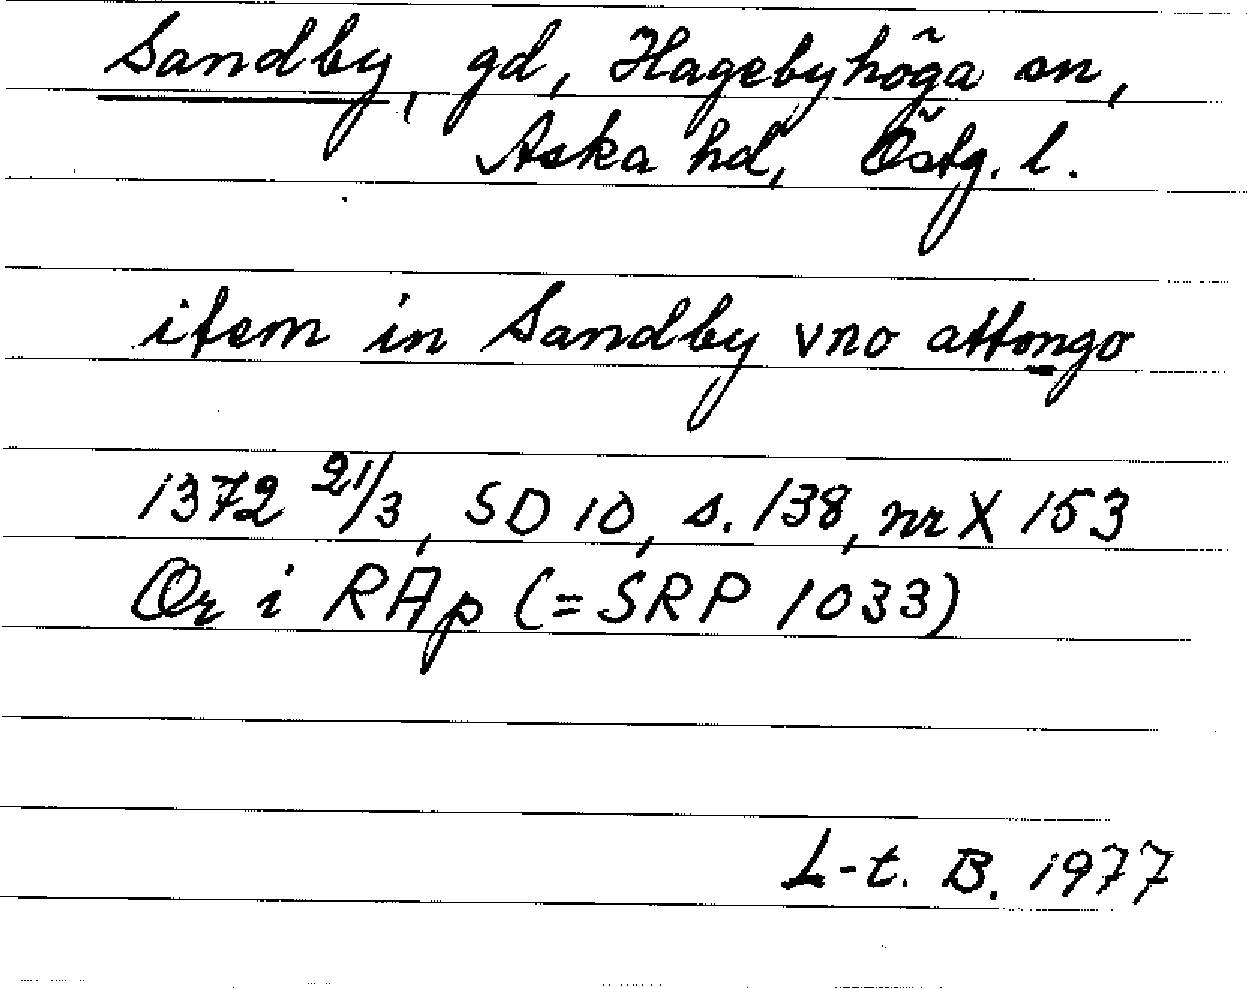 Sandby, gd, Hagebyhöga sn,
Aska hd, Östg. l.
item in Sandby vno attongo
1372 21/3, SD 10, s. 138, nr X 153
Or i RAp (= SRP 1033)
L-t. B. 1977